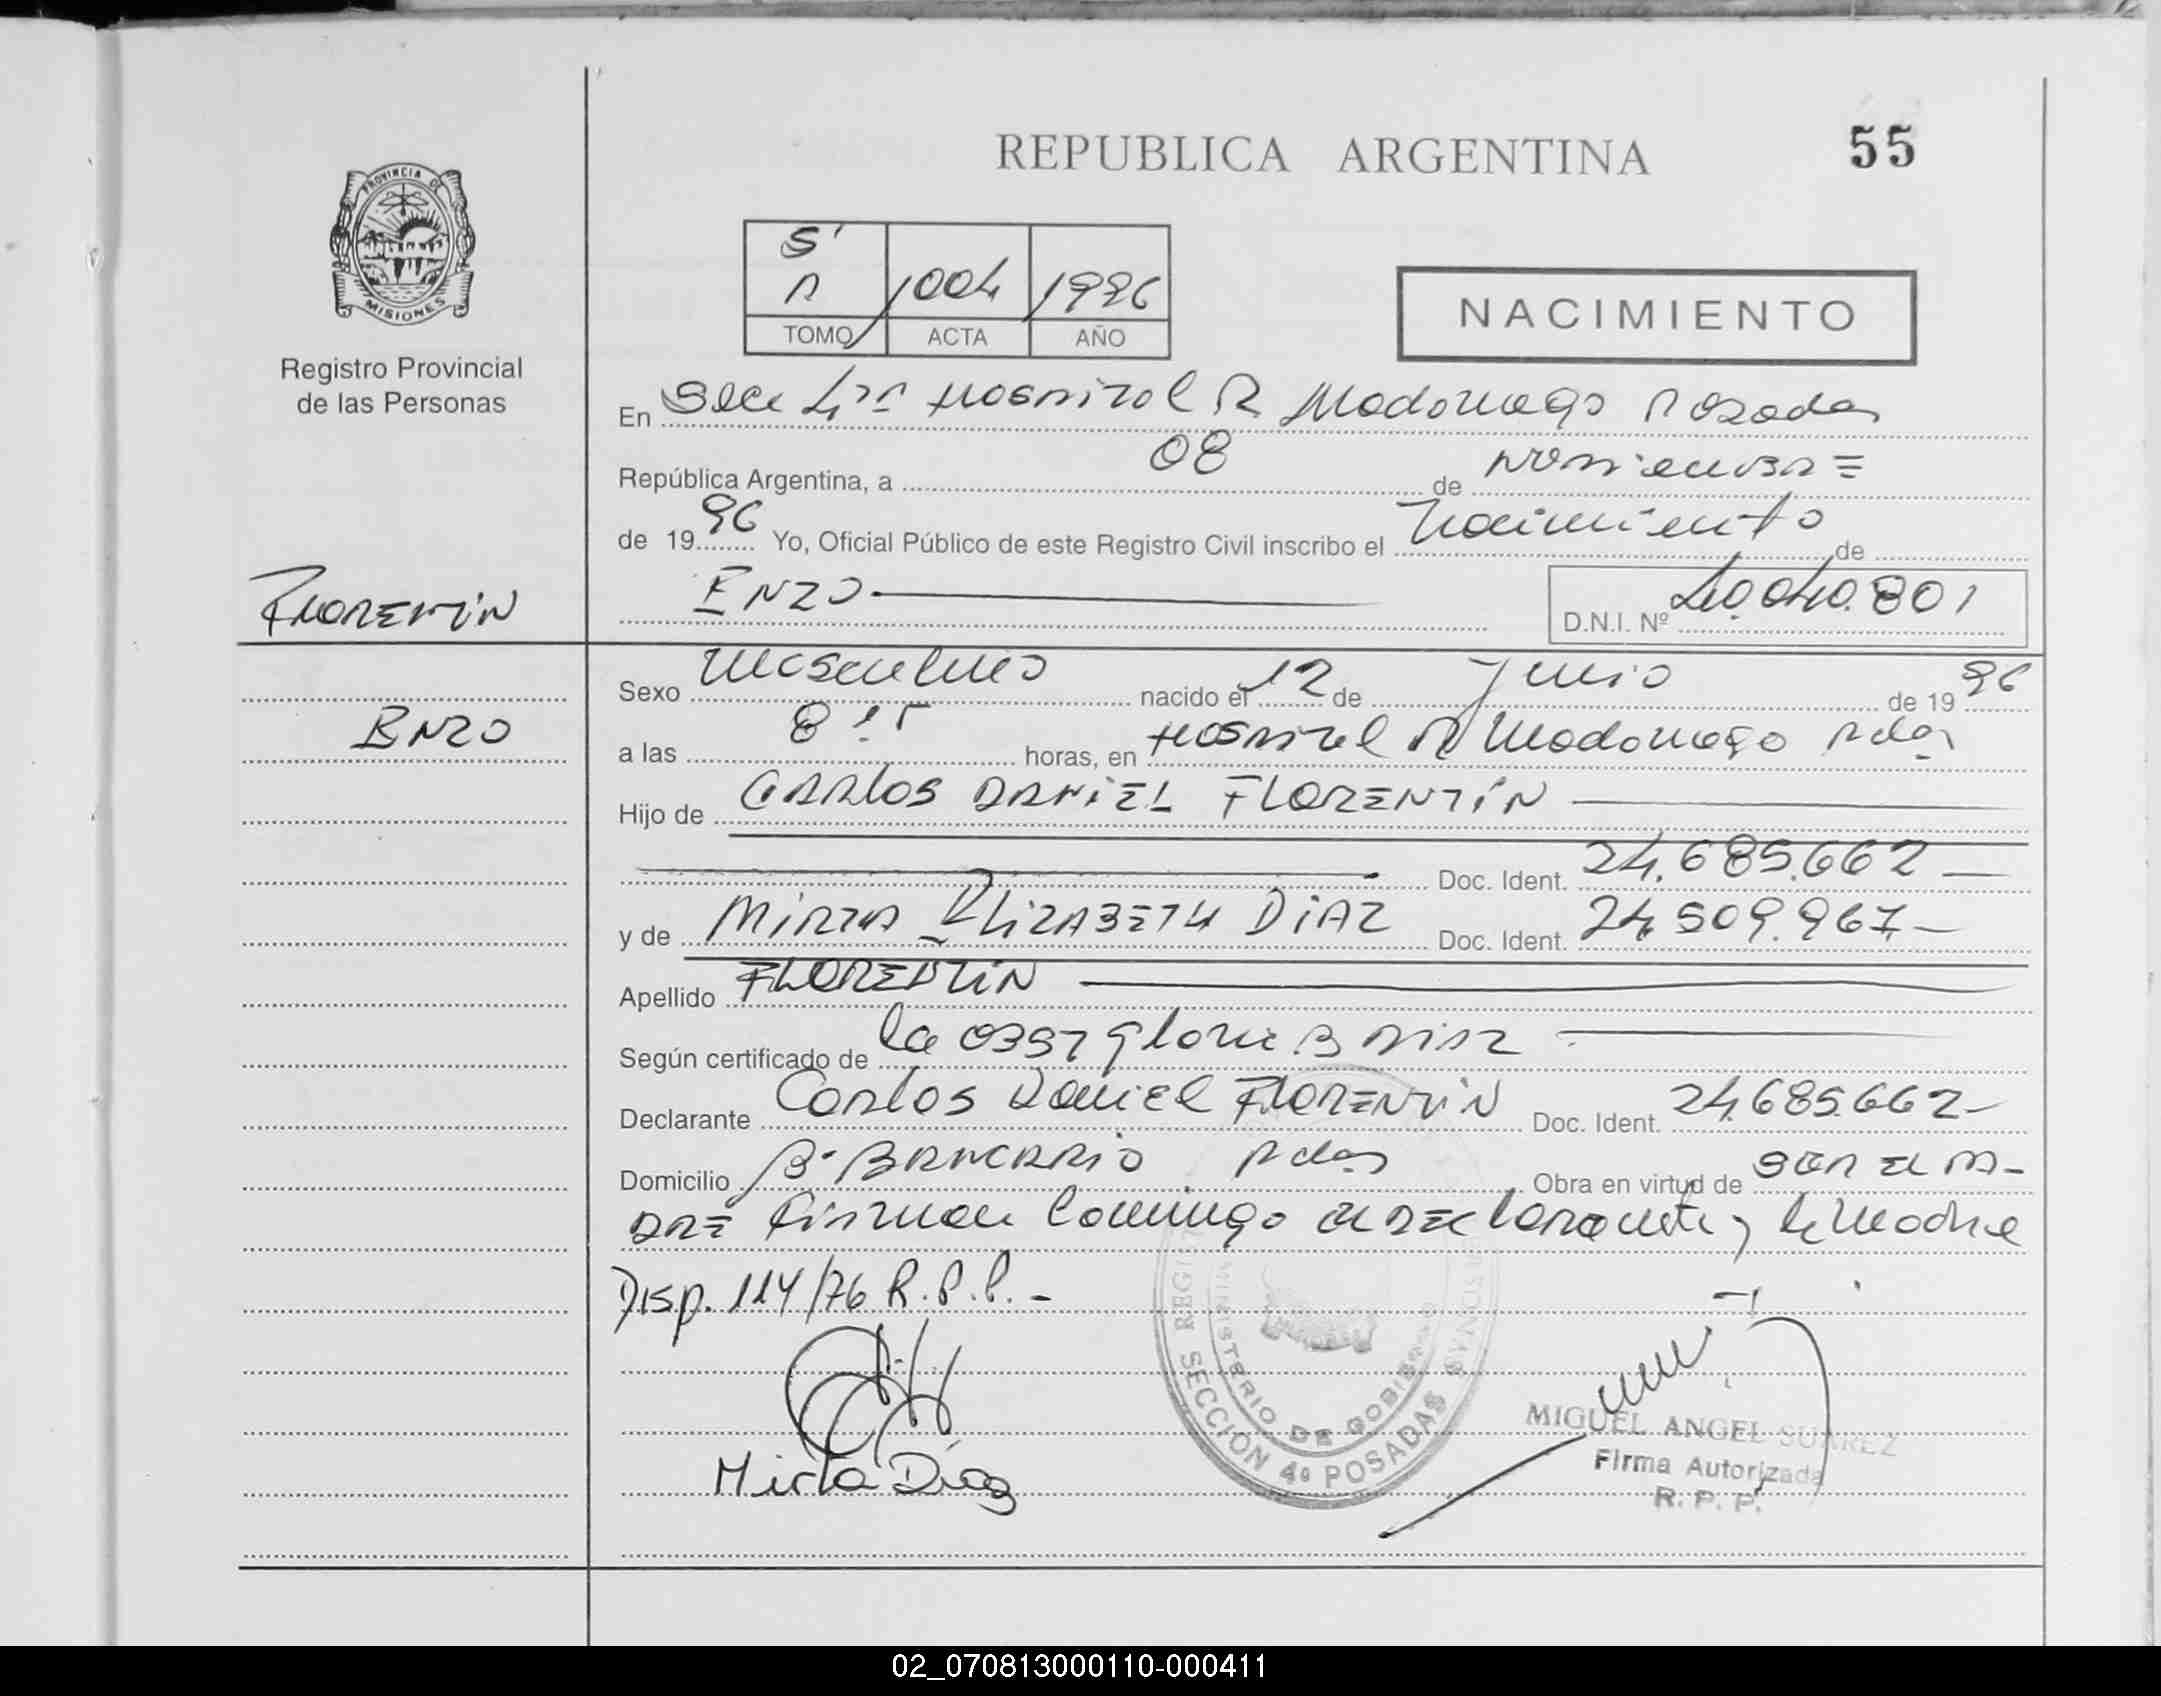 REPUBLICA ARGENTINA
55
PROVINCIA DE
MISIONES
Registro Provincial
de las Personas
S'
1004 1996
TOMO ACTA AÑO
NACIMIENTO
En Secc 4ta Hospital R Madariaga Posadas
República Argentina, a 08 de
de 1996 Yo, Oficial Público de este Registro Civil inscribo el Nacimiento de
FLORENTIN
ENZO.
D.N.I. Nº 40.040.801
Sexo Masculino nacido el 12 de Junio de 1996
ENZO
a las 8:15 horas, en Hospital R Madariaga Pdas
Hijo de CARLOS DANIEL FLORENTÍN
Doc. Ident. 24.685.662
y de MIRTA ELIZABETH DIAZ Doc. Ident. 24.509.967
Apellido FLORENTIN
Según certificado de la Obst Gloria B Diaz
Declarante Carlos Daniel FLORENTIN Doc. Ident. 24.685.662
Domicilio Bº BANCARIO Pdas Obra en virtud de SER EL PA-
DRE Firman Conmigo el declarante y la Madre
Disp. 114/76 R.P.P.-
Mirta Díaz
REGIST
MINISTERIO DE GOBIERNO
SECCIÓN 4º POSADAS
MIGUEL ANGEL SUAREZ
Firma Autorizada
R. P. P.
02_070813000110-000411